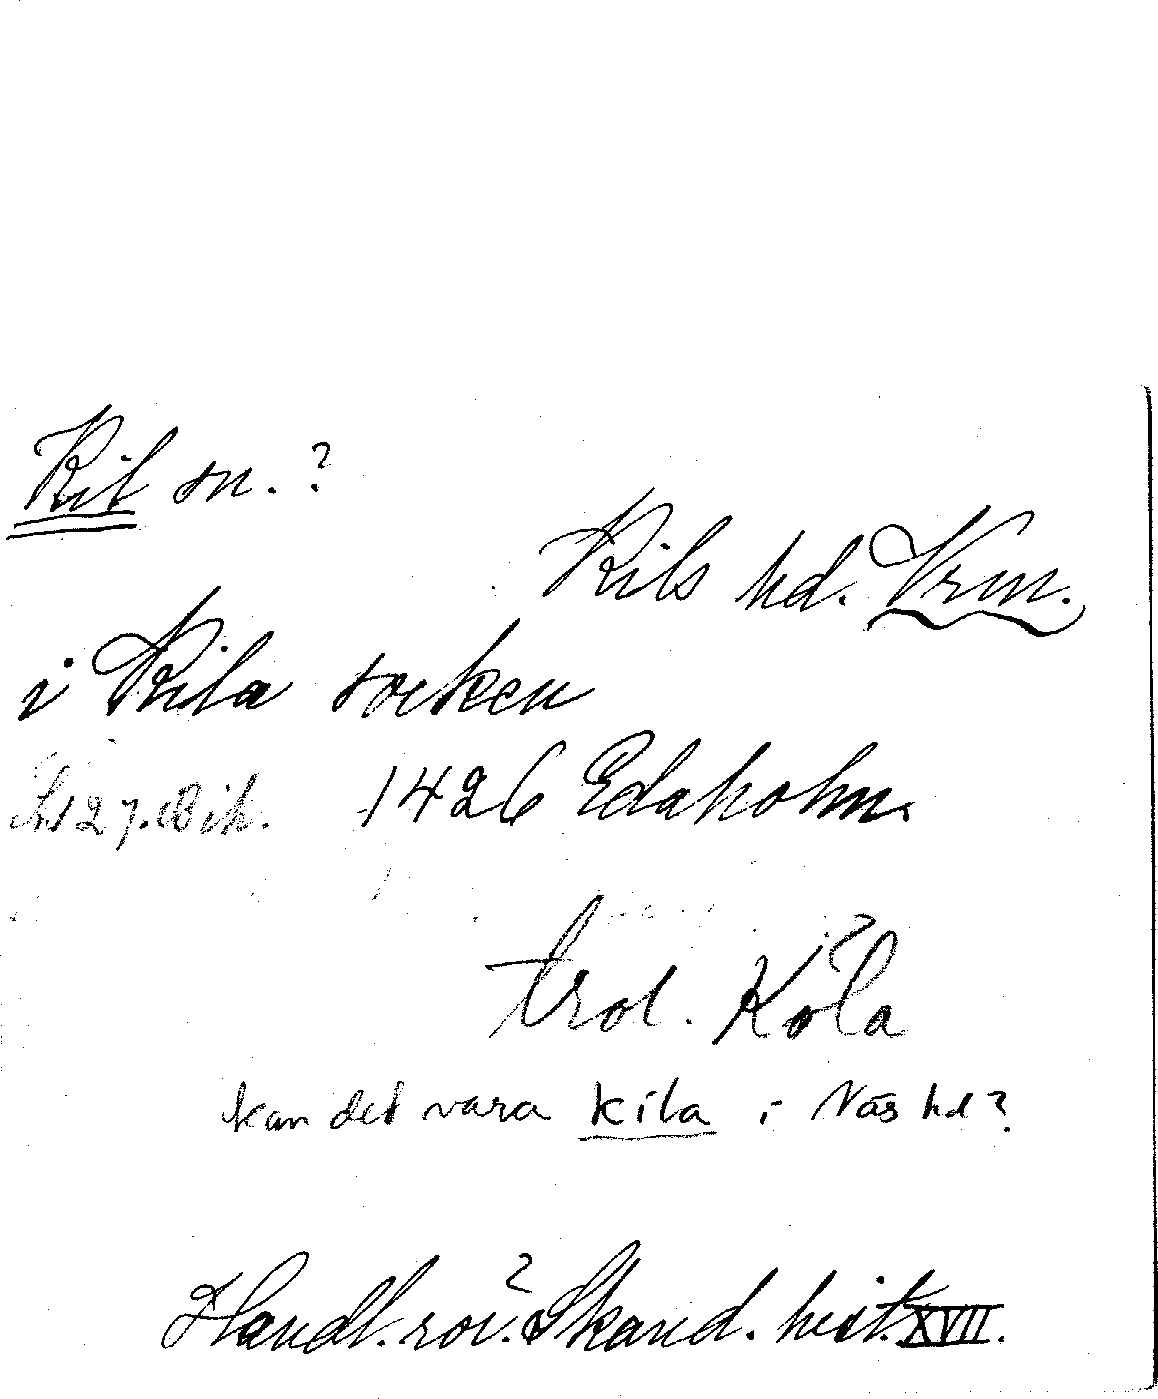 Kil sn.?
Kils hd. Vrm.
i Kila socken
1427. Bih. 1426 Edaholm.
trol. Köla
kan det vara Kila i Näs hd?
Handl. rör. Skand. hist. XVII.